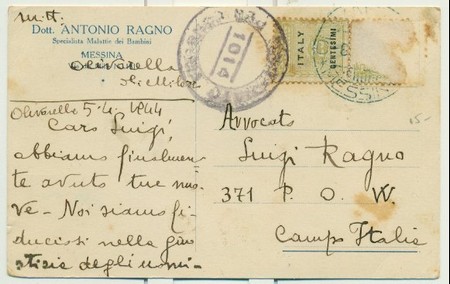 m. tt.
Dott. ANTONIO RAGNO
Specialista Malattie dei Bambini
MESSINA
Olivarella
di Milazzo
Olivarella 5-4-1944
Caro Luigi,
abbiamo finalmen-
te avuto tue nuo-
ve - Noi siamo fi-
duciosi nella giu-
stizia degli uomi-
1014
ITALY
CENTESIMI
Avvocato
Luigi Ragno
371 P. O. W.
Camp Italia
15-